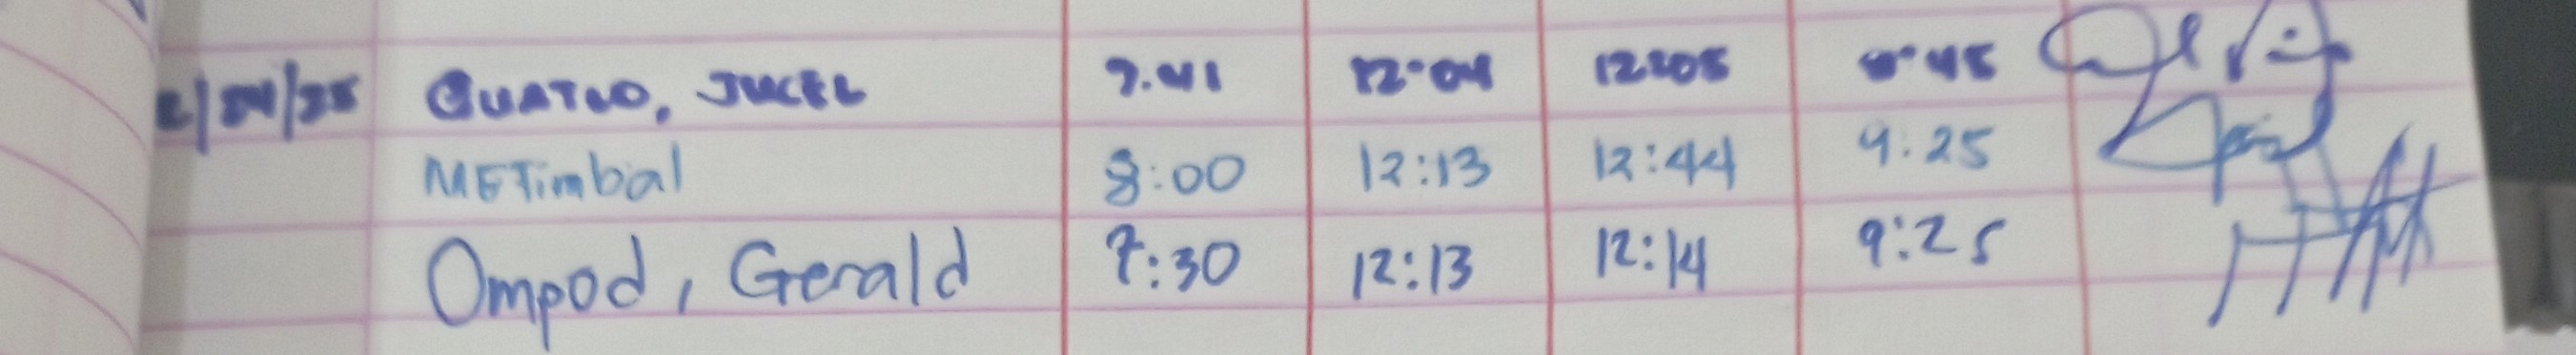 GUATNO, JUCEL 7:41 12:04 12:05 8:45
METimbal 8:00 12:13 12:44 9:25
Ompod, Gerald 7:30 12:13 12:14 9:25